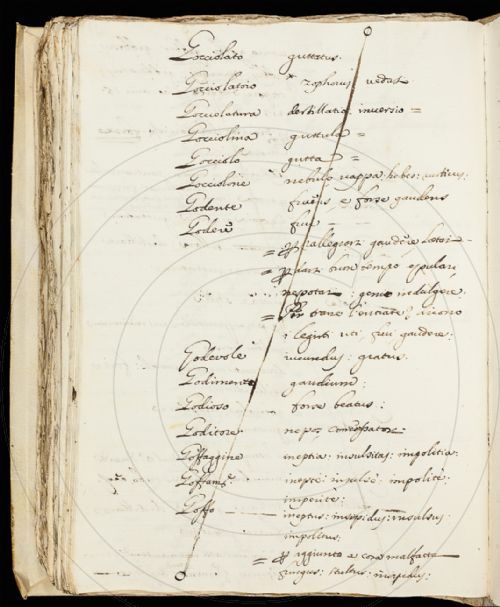 Gocciolato guttatus.
Gocciolatoio zophorus
Gocciolatura destillatio inversio =
Gocciolina guttula =
Gocciolo gutta =
Gocciolone nebulo vappa hebes: rusticus:
Godente fruens e forse gaudens
Godere frui
= P rallegrarsi gaudere
= P darsi buon tempo epulari
nepotar : genio indulgere.
= Per trarre l'entrate,
frui gaudere:
Godevole iucundus: gratus.
Godimento gaudium:
Godioso forse beatus:
Goditore nepos comessatore
Goffaggine ineptia: insulsitas: impolitia:
Goffam.e inepte: insulse: impolite:
imperite:
Goffo ineptus: insipidus: insulsus:
impolitus:
= P aggiunto a cosa malfatta
fungus: stultus: insipidus: